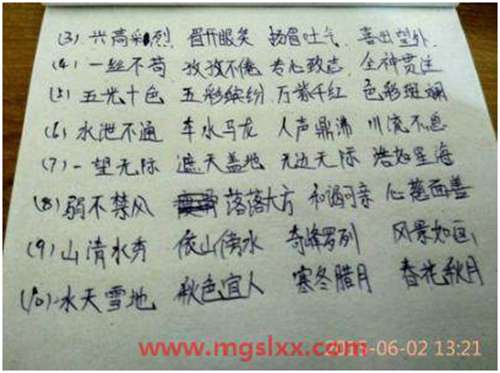 (3) 兴高彩烈 眉开眼笑 扬眉吐气 喜出望外
(4) 一丝不苟 孜孜不倦 专心致志 全神贯注
(5) 五光十色 五彩缤纷 万紫千红 色彩斑斓
(6) 水泄不通 车水马龙 人声鼎沸 川流不息
(7) 一望无际 遮天盖地 无边无际 浩如星海
(8) 弱不禁风 落落大方 和谒可亲 心慈面善
(9) 山清水秀 依山傍水 奇峰罗列 风景如画
(10) 水天雪地 秋色宜人 寒冬腊月 春花秋月
www.mgslxx.com
-06-02 13:21